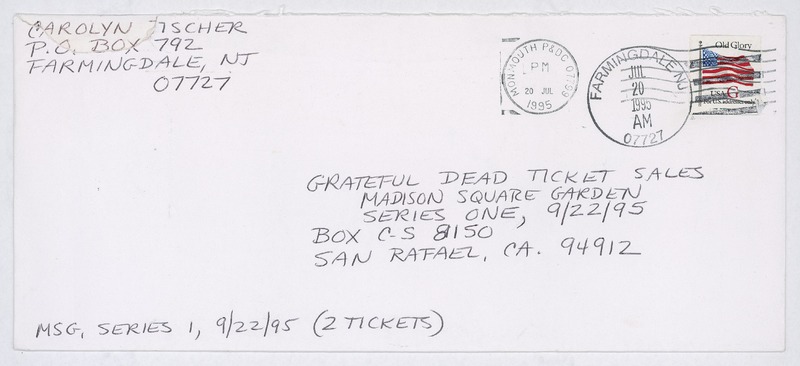 CAROLYN
P.O. BOX 792
FARMINGDALE, NJ
07727
MONMOUTH P&DC 07799
PM
20 JUL
1995
FARMINGDALE NJ
JUL
20
1995
AM
07727
Old Glory
USA G
For U.S. addresses only
GRATEFUL DEAD TICKET SALES
MADISON SQUARE GARDEN
SERIES ONE, 9/22/95
BOX C-S 8150
SAN RAFAEL, CA. 94912
MSG, SERIES 1, 9/22/95 (2 TICKETS)